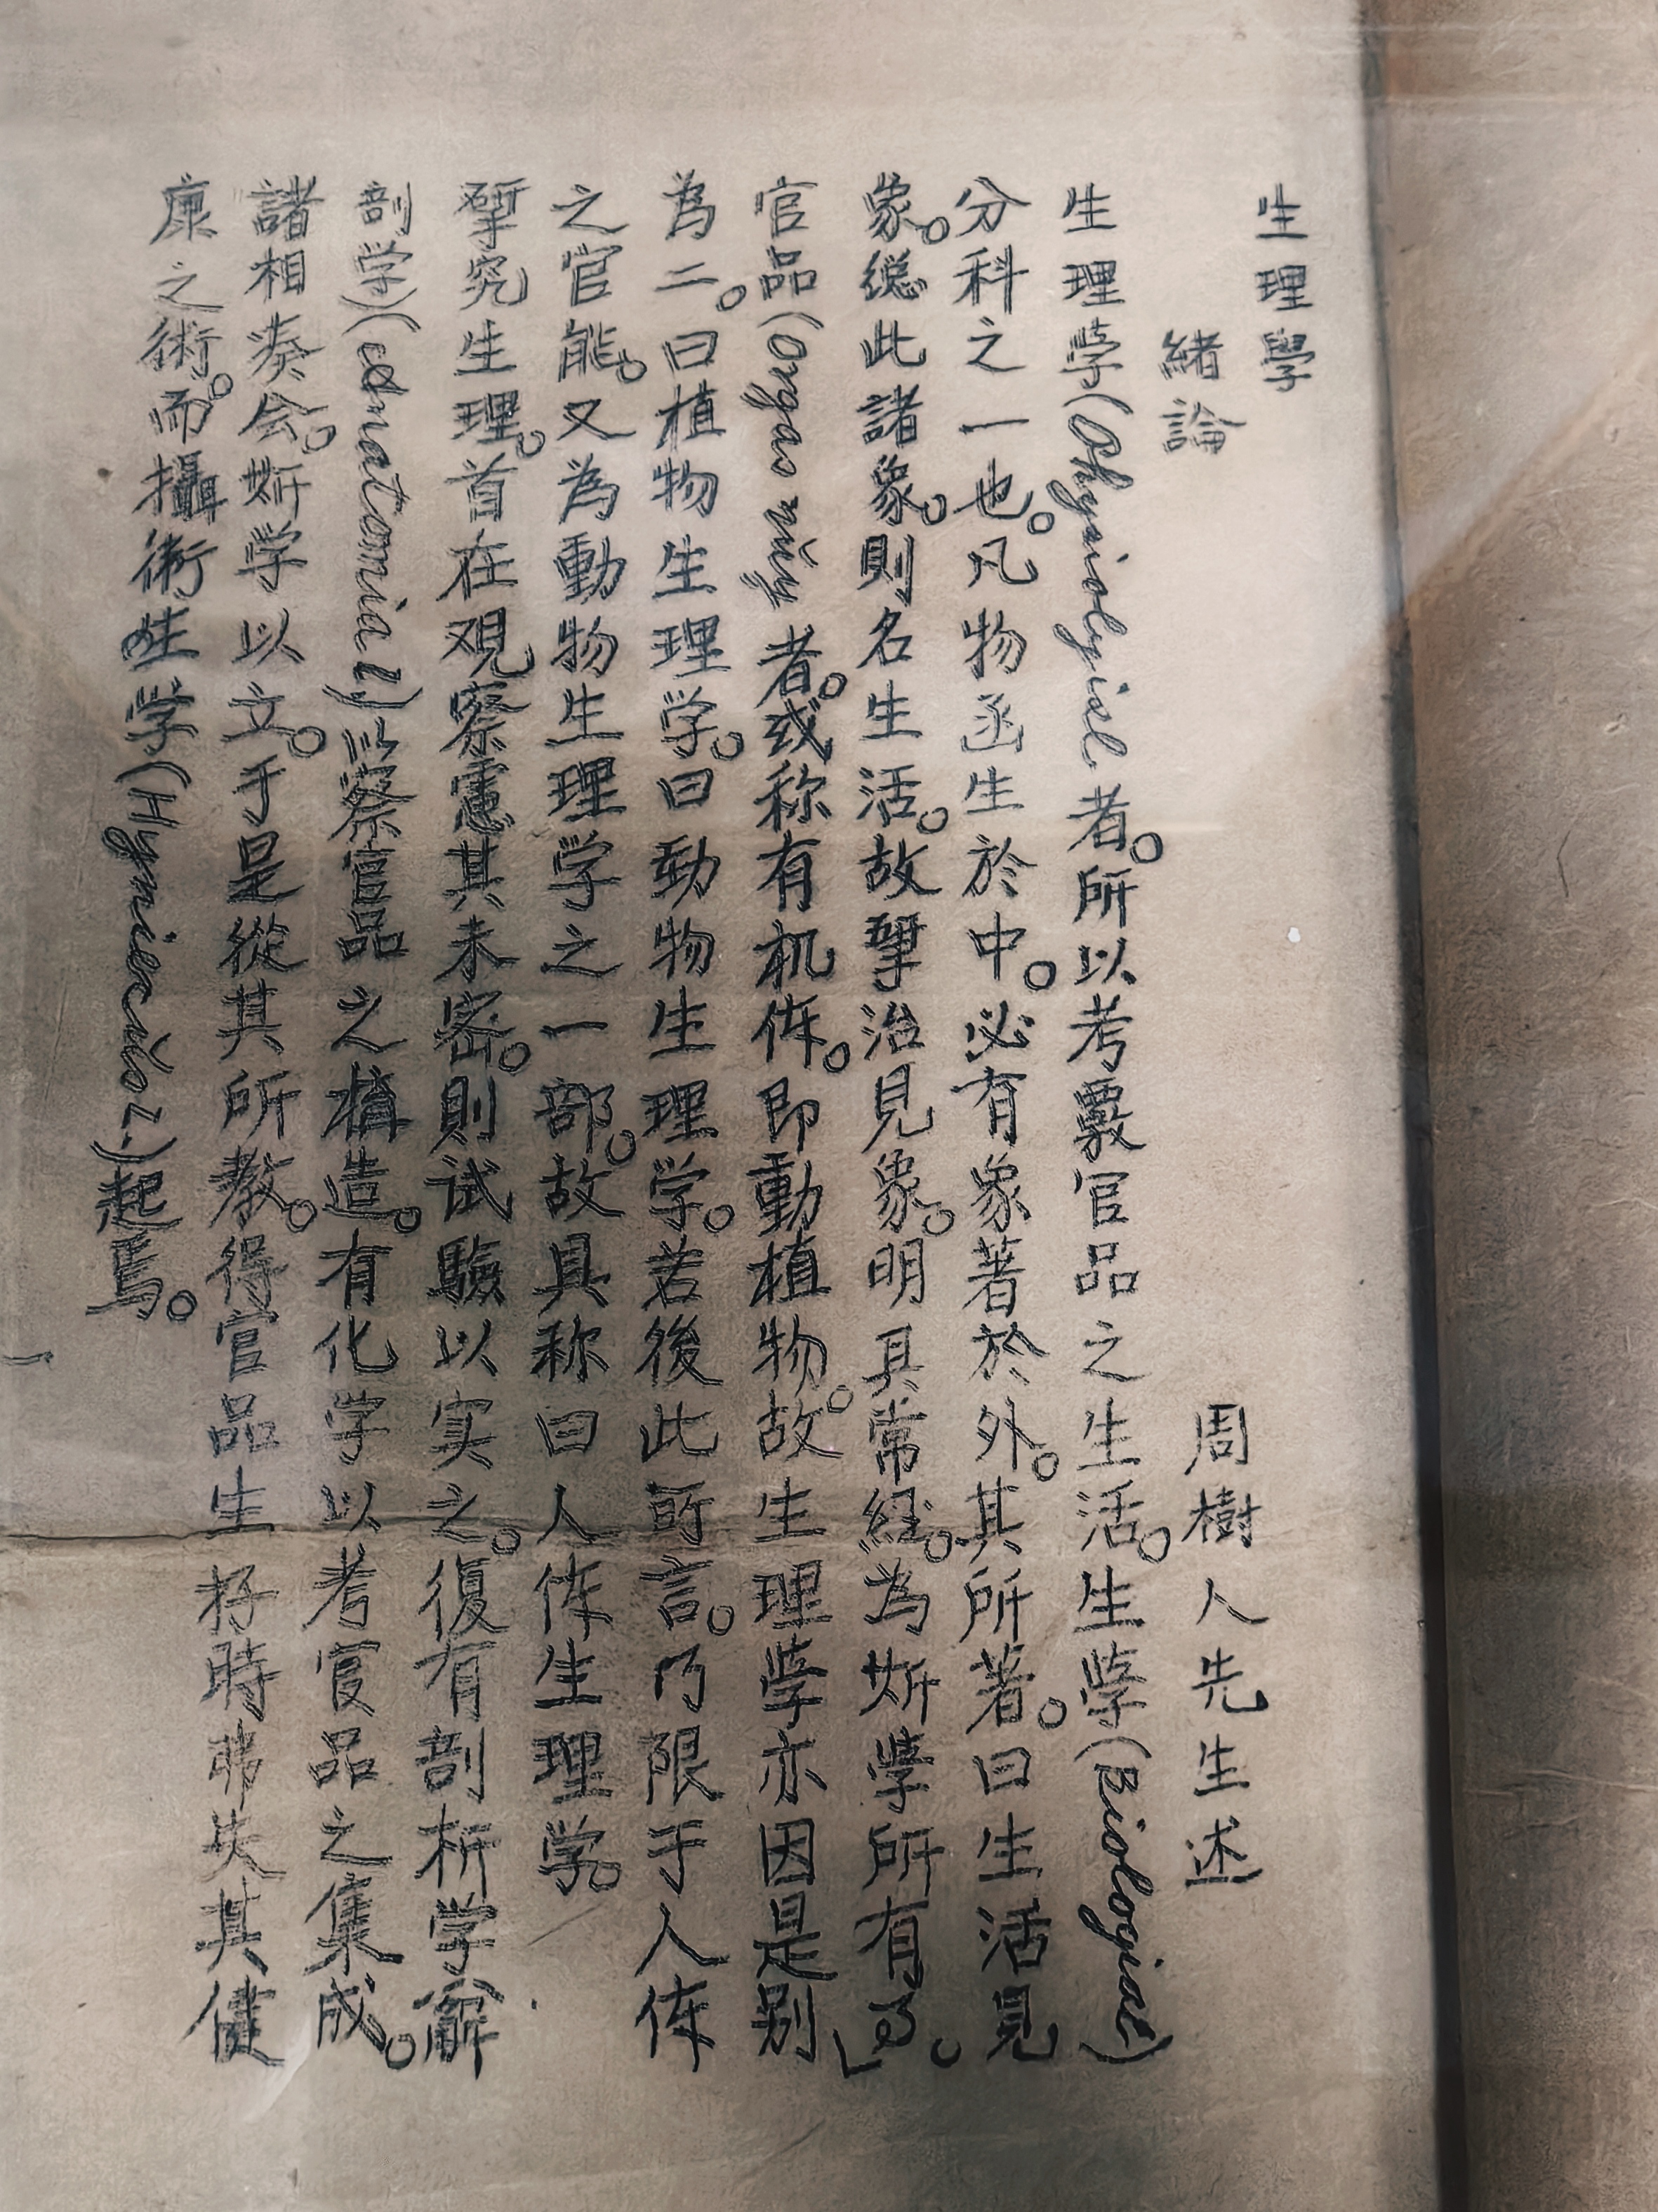 生理學
緒論
周樹人先生述
生理学(Physiologial者。所以考覈官品之生活。生学(Biologiae)
分科之一也。凡物函生於中。必有象著於外。其所著。曰生活見
象。総此諸象。則名生活。故揅治見象。明其常經。為斯学所有
官品(者。或称有机体。即動植物。故生理学亦因是别
為二。曰植物生理学。曰動物生理学。若後此所言。乃限于人体
之官能。又為動物生理学之一部。故具称曰人体生理学。
揅究生理。首在观察慮其未密。則试驗以实之。復有剖析学解
剖学)(Anatomia以察官品之構造。有化学以考官品之集成。
諸相湊会。斯学以立。于是從其所教。得官品生存時弗失其健
康之術。而攝衛生学(起焉。
一